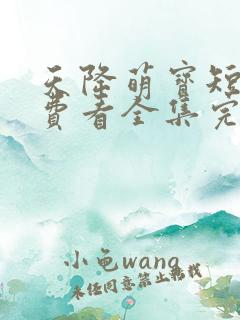 天降萌寶短
費看全集完
小龟wang
未经同意禁止转载